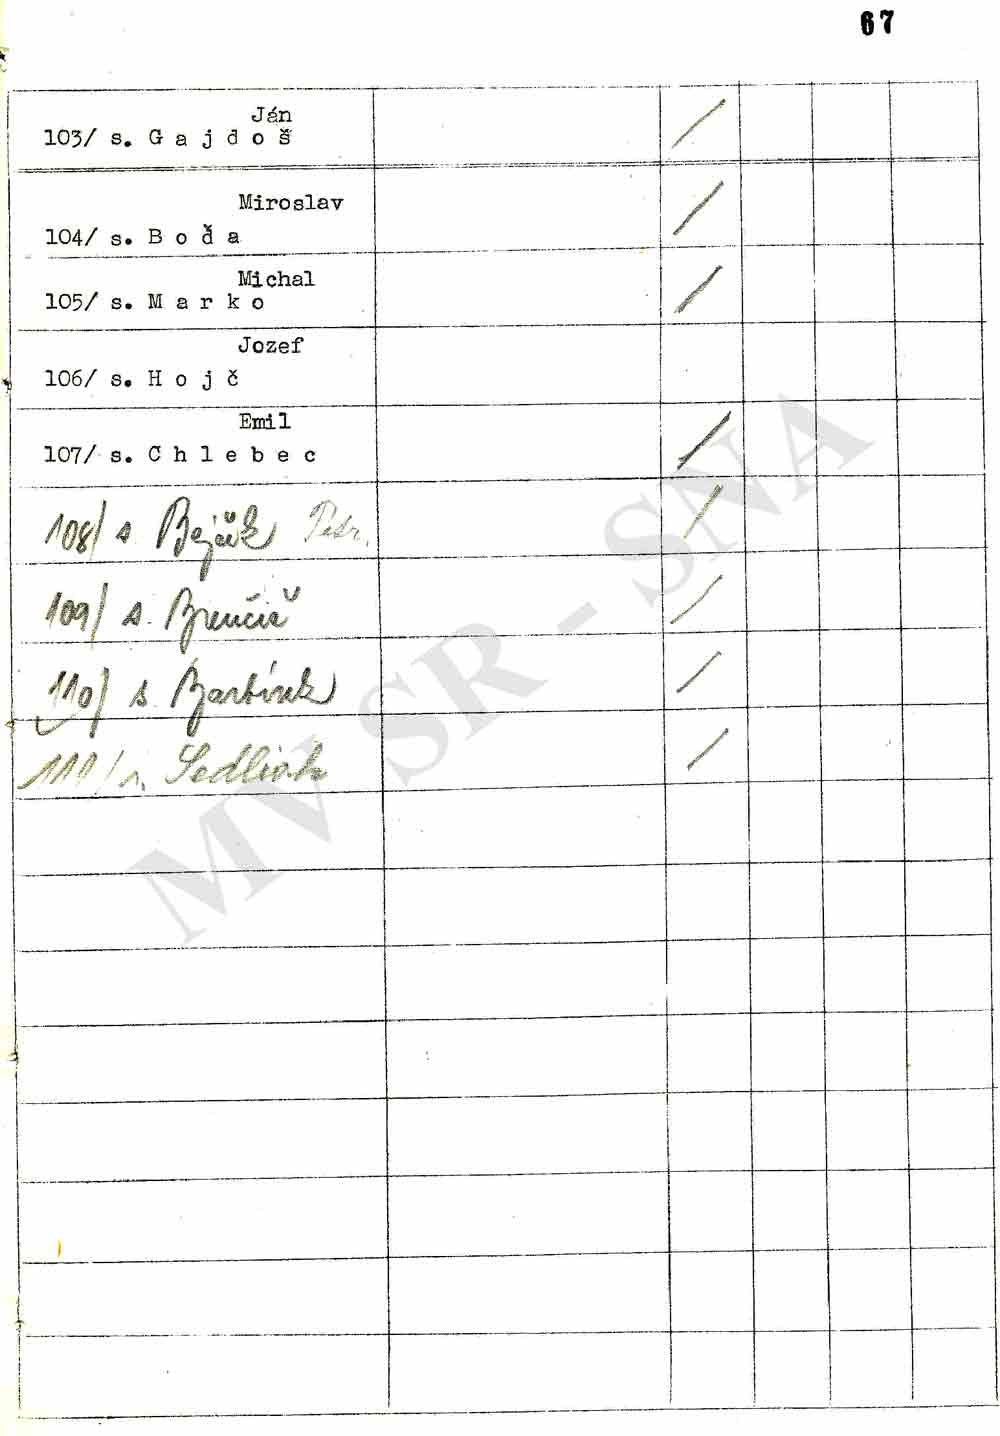 67
Ján
103/ s. G a j d o š
Miroslav
104/ s. B o ď a
Michal
105/ s. M a r k o
Jozef
106/ s. H o j č
Emil
107/ s. C h l e b e c
108/ s Bejčák Petr.
109/ s. Brenčič
110/ s. Bartínek
111/ s. Sedliak
MV SR - SNA